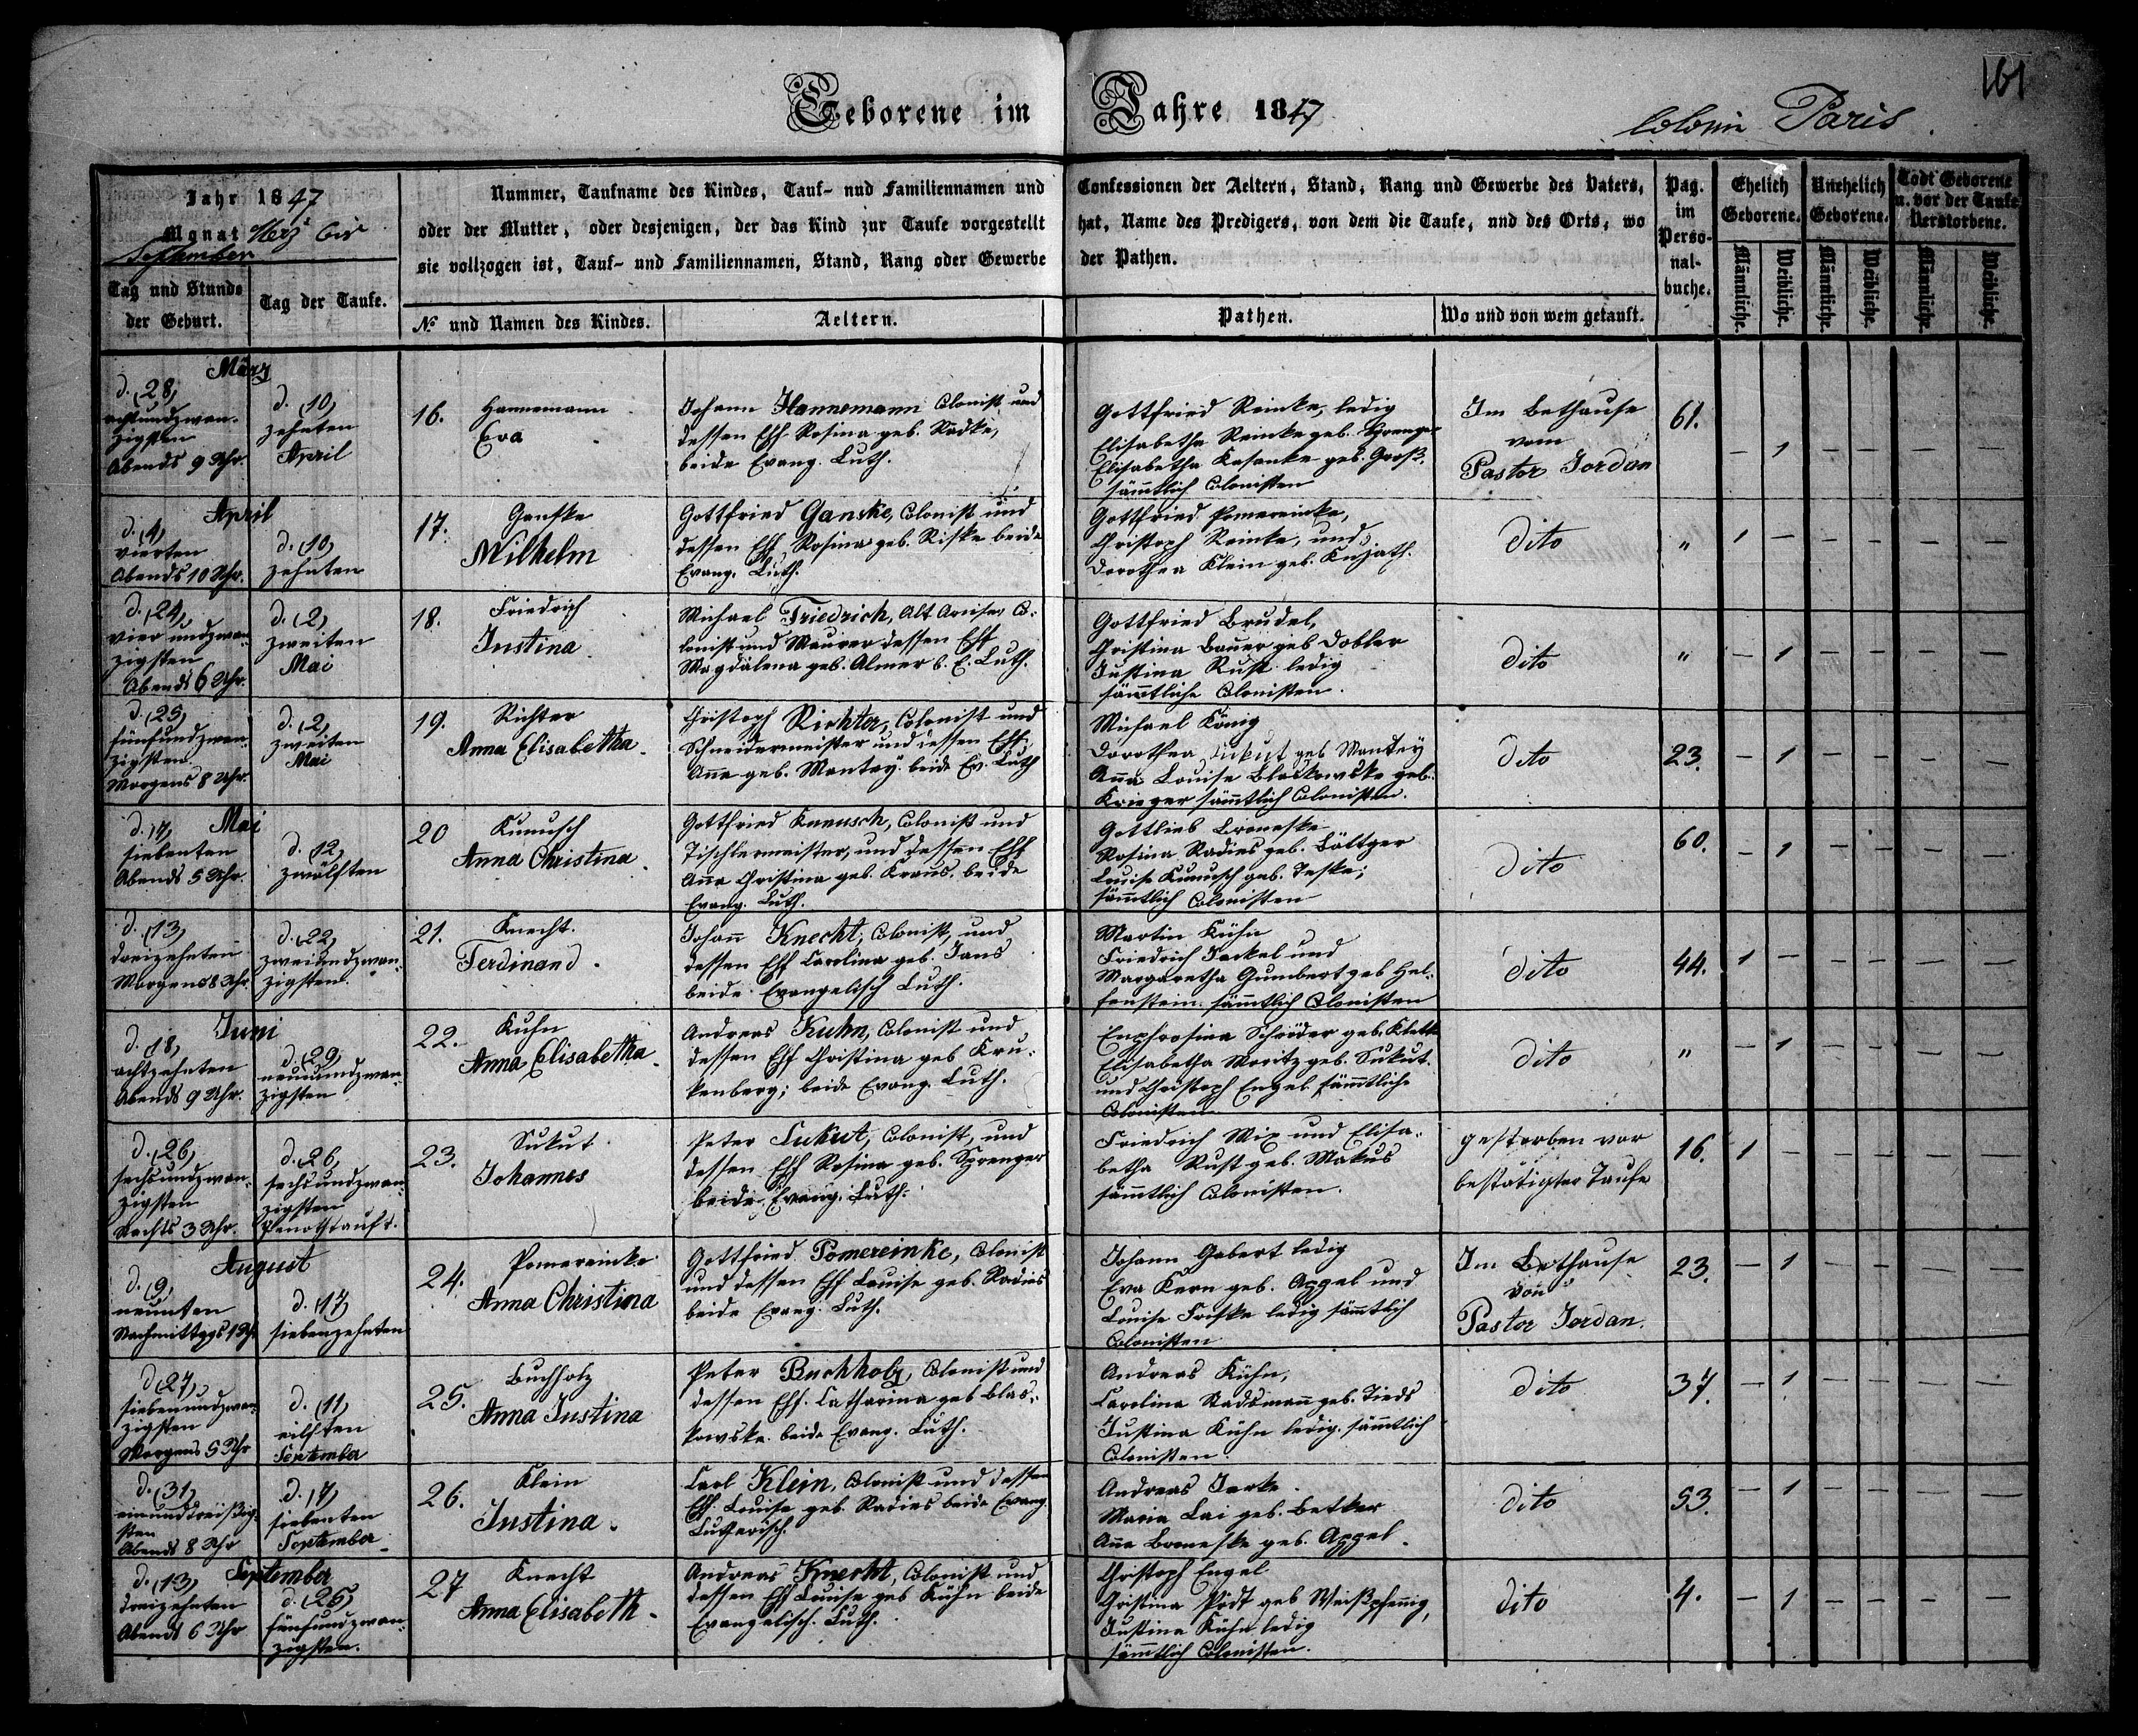 161
Geborene im Jahre 1847
Colonie Paris.
Jahr 1847
Monat Merz bis
September
Tag und Stunde
der Geburt.
Tag der Taufe.
Nummer, Taufname des Kindes, Tauf- und Familiennamen und
oder der Mutter, oder desjenigen, der das Kind zur Taufe vorgestellt
sie vollzogen ist, Tauf- und Familiennamen, Stand, Rang oder Gewerbe
№ und Namen des Kindes.
Aeltern.
Confessionen der Aeltern, Stand, Rang und Gewerbe des Vaters,
hat, Name des Predigers, von dem die Taufe, und des Orts, wo
der Pathen.
Pathen.
Wo und von wem getauft.
Pag.
im
Perso-
nal-
buche.
Ehelich
Geborene.
Unehelich
Geborene.
Todt Geborene
u. vor der Taufe
Verstorbene.
Männliche.
Weibliche.
Männliche.
Weibliche.
Männliche.
Weibliche.
März
d. (28)
achtundzwan-
zigsten
Abends 9 Uhr.
d. (10)
zehnten
April
16.
Hannemann
Eva
Johann Hannemann Colonist und
dessen Ehf Rosina geb. Radke,
beide Evang. Luth.
Gottfried Reinke, ledig
Elisabetha Reinke geb. Sprenger
Elisabetha Kasanke geb. Groß,
sämtlich Colonisten
Im Bethause
vom
Pastor Jordan
61.
– 1 – – – –
April
d. (4)
vierten
Abends 10 Uhr.
d. (10)
zehnten
17.
Ganske
Wilhelm
Gottfried Ganske, Colonist und
dessen Ehf Rosina geb. Riske beide
Evang. Luth.
Gottfried Pomereinke,
Christoph Reinke, und
Dorothea Klein geb. Kujath.
dito
"
1 – – – – –
d. (24)
vierundzwan-
zigsten
Abends 6 Uhr.
d. (2)
zweiten
Mai
18.
Friedrich
Justina
Michael Friedrich, Alt Arciser Co-
lonist und Maurer dessen Ehf
Magdalena geb. Almer b. E. Luth.
Gottfried Brudel,
Christina Bauer geb Dobler
Justina Rust ledig
sämtliche Colonisten.
dito
"
– 1 – – – –
d. (25)
fünfundzwan-
zigsten
Morgens 8 Uhr.
d. (2)
zweiten
Mai
19.
Richter
Anna Elisabetha.
Christoph Richter, Colonist und
Schneidermeister und dessen Ehf
Anna geb. Mantey. beide Ev. Luth
Michael König
Dorothea Sukut geb Mantey
Anna Louise Blaskowske geb.
Krieger sämtlich Colonisten.
dito
23.
– 1 – – – –
Mai
d. (7)
siebenten
Abends 5 Uhr.
d. (12)
zwölften
20
Kunusch
Anna Christina.
Gottfried Kunusch, Colonist und
Tischlermeister, und dessen Ehf
Anna Christina geb. Kraus. beide
Evang. Luth.
Gottlieb Broneske
Rosina Radies geb. Böttger
Louise Kunusch geb. Teske;
sämtlich Colonisten
dito
60.
– 1 – – – –
d. (13)
dreizehnten
Morgens 8 Uhr.
d. (22)
zweiundzwan-
zigsten.
21.
Knecht.
Ferdinand.
Johann Knecht, Colonist, und
dessen Ehf Carolina geb. Jans
beide Evangelisch Luth.
Martin Kühn
Friedrich Jackel und
Margaretha Gumbert geb Hel-
fenstein. sämtlich Colonisten
dito
44.
1 – – – – –
Juni
d. (18)
achtzehnten
Abends 9 Uhr.
d. (29)
neunundzwan-
zigsten
22.
Kuhn
Anna Elisabetha.
Andreas Kuhn, Colonist und
dessen Ehf Christina geb Kru-
kenberg; beide Evang. Luth.
Euphrosina Schröder geb. Klatt
Elisabetha Moritz geb. Sukut.
und Christoph Engel sämtliche
Colonisten
dito
"
– 1 – – – –
d. (26)
sechsundzwan-
zigsten
Nachts 3 Uhr.
d. (26)
sechsundzwan-
zigsten
Genothtauft.
23.
Sukut.
Johannes
Peter Sukut, Colonist, und
dessen Ehf Rosina geb. Sprenger
beide Evang. Luth.
Friedrich Mix und Elisa-
betha Rust geb. Makus
sämtlich Colonisten.
gestorben vor
bestätigter Taufe
16.
1 – – – – –
August
d. (9)
neunten
Nachmittags 1 Uhr
d. (17)
siebenzehnten
24.
Pomereinke
Anna Christina
Gottfried Pomereinke, Colonist
und dessen Ehf Louise geb. Radies
beide Evang. Luth.
Johann Gabert ledig
Eva Kern geb. Appel und
Louise ledig sämtlich
Colonisten
Im Bethause
von
Pastor Jordan.
23.
– 1 – – – –
d (27)
siebenundzwan-
zigsten
Morgens 5 Uhr
d. (11)
eilften
September
25.
Buchholz
Anna Justina
Peter Buchholz, Colonist und
dessen Ehf. Catharina geb Blas-
kowske. beide Evang. Luth.
Andreas Kühn,
Carolina Radsmann geb. Tieds
Justina Kühn ledig. sämtlich
Colonisten.
dito
37
– 1 – – – –
d. (31)
einunddreißig-
sten
Abends 8 Uhr
d. (7)
siebenten
September
26.
Klein
Justina.
Carl Klein, Colonist und dessen
Ehf. Louise geb Radies beide Evang.
Lutherisch.
Andreas Jerke.
Maria Lai geb. Betker
Anna Broneske geb. Appel.
dito
53.
– 1 – – – –
September
d. (13)
dreizehnten
Abends 6 Uhr
d. (25)
fünfundzwan-
zigsten.
27
Knecht
Anna Elisabeth.
Andreas Knecht, Colonist und
dessen Ehf Louise geb Kühn beide
Evangelisch. Luth.
Christoph Engel
Christina geb Weißpfenig,
Justina Kühn ledig
sämtlich Colonisten.
dito
4.
– 1 – – – –